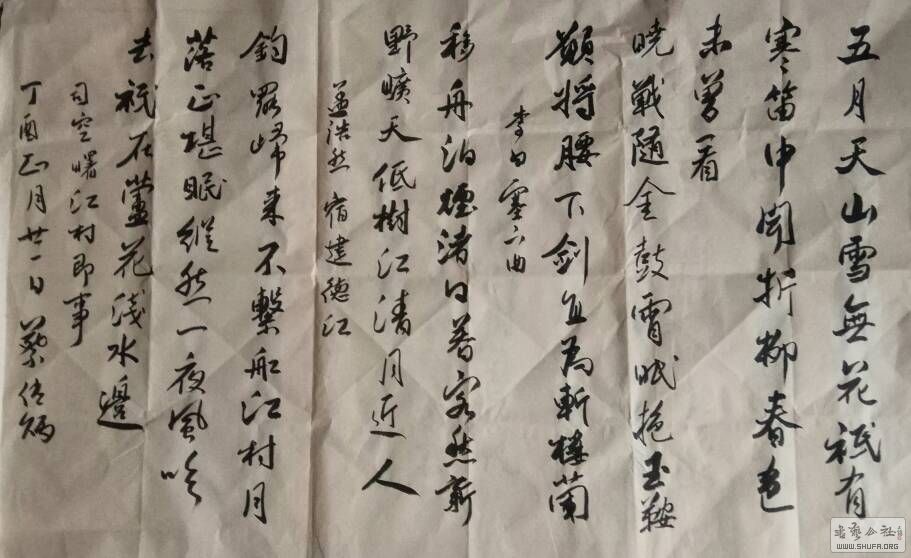 五月天山雪無花祇有
寒笛中聞折柳春色
未曾看
曉戰隨金鼓宵眠抱玉鞍
願將腰下劍直為斬樓蘭
李白塞六曲
移舟泊煙渚日暮客愁新
野曠天低樹江清月近人
孟浩然宿建德江
釣罷歸來不繫船江村月
落正堪眠縱然一夜風吹
去祇在蘆花淺水邊
司空曙江村即事
丁酉正月廿一日蔡
書藝公社
WWW.SHUFA.ORG